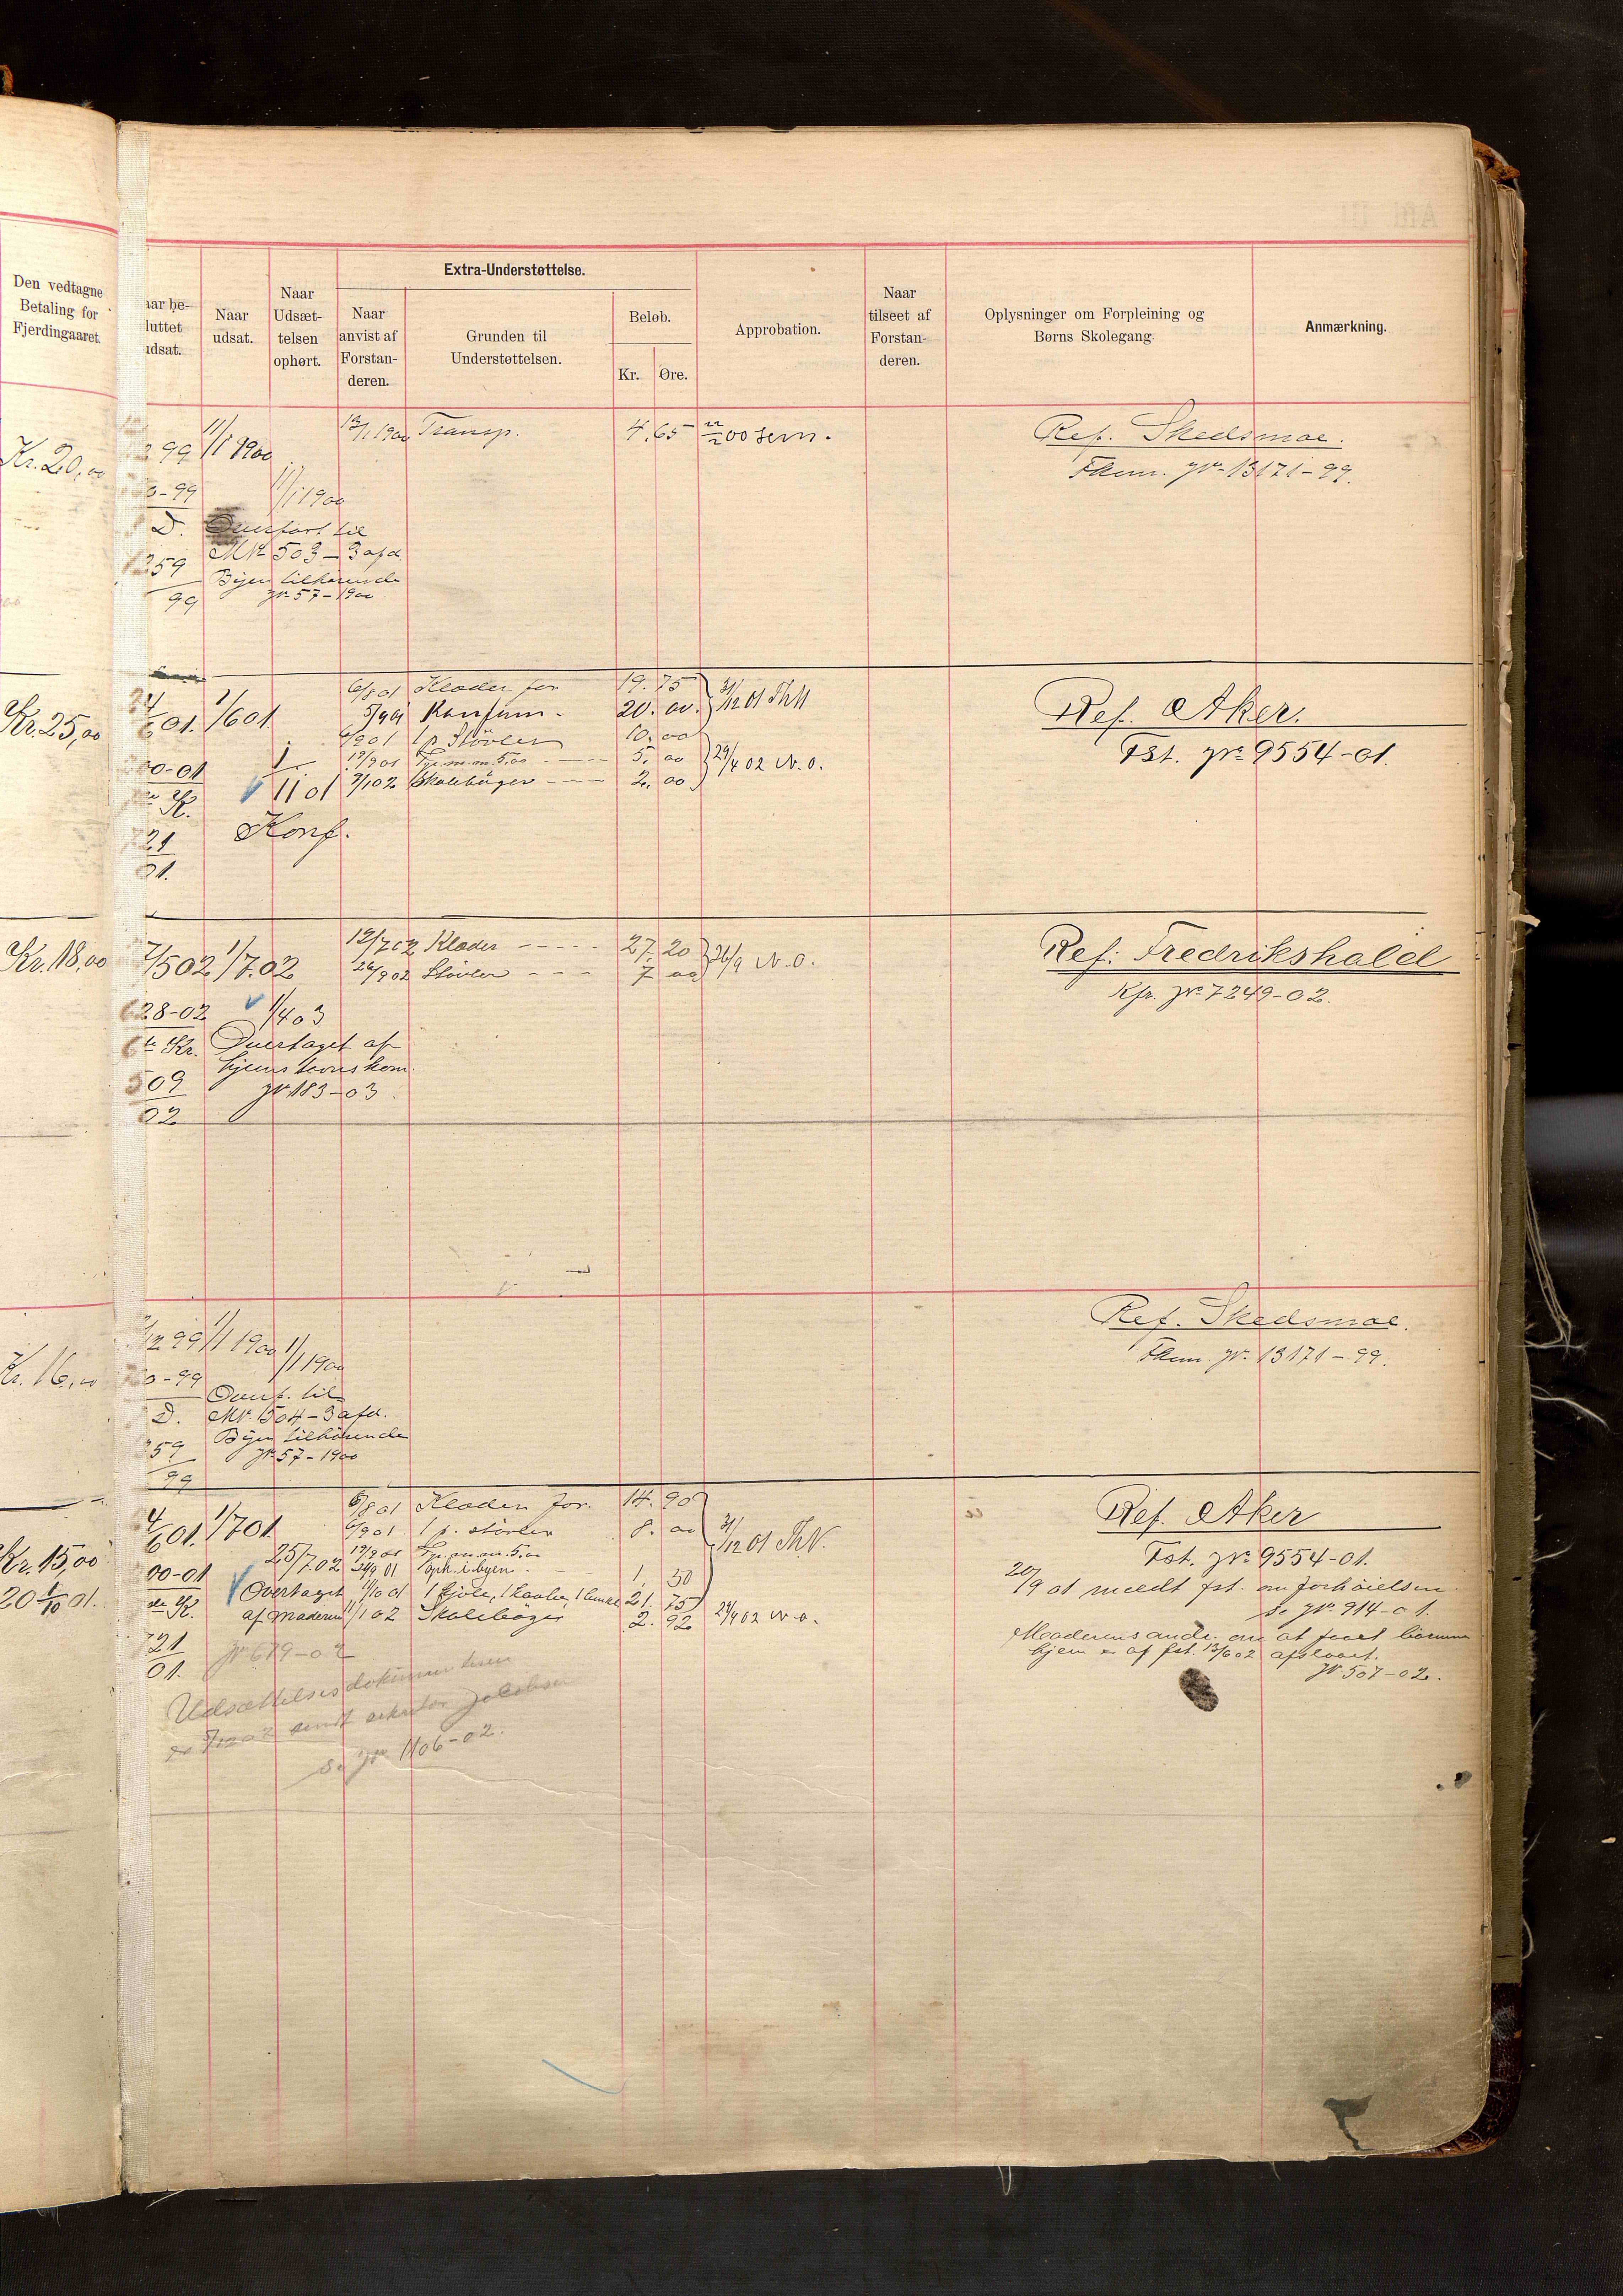 Den vedtagne
Betaling for
Fjerdingaaret.
aar be-
luttet
udsat.
Naar
udsat.
Naar
Udsæt-
telsen
ophørt.
Extra-Understøttelse.
Naar
anvist af
Forstan-
deren.
Grunden til
Understøttelsen.
Beløb.
Kr.
Øre.
Approbation.
Naar
tilseet af
Forstan-
deren.
Oplysninger om Forpleining og
Børns Skolegang
Anmærkning.
Kr. 20,00
99
1/1 1900
13/1 1900 Transp. 4.65
Ref. Skedsmoe.
Fkom. Jr 13171-99.
0-99
1/1 1900
D. Overført til
359 Mk 503 - 3 afd.
Byen tilhørende
99 Jr 57-1900
Kr. 25,00
24/6 01. 1/6 01.
6/8 01 Klæder for 19.75
5/9 01 Konfirm. 20.00 31/12 01 ThN
6/9 01 1 p. Støvler 10.00
19/9 01 m.m. 5.00 5.00
9/1 02 Skolebøger 2.00 29/4 02 N.O.
Ref. Aker.
Fst. Jr 9554-01.
00-01
K. 1/11 01
Konf.
21
01.
Kr. 18,00
7/5 02 1/7.02
12/7 02 Klæder 27.20
26/9 02 Støvler 7 00 26/9 N.O.
Ref: Fredrikshald
Kfr. Jr 7249-02.
628-02 1/4 03
6te Kr. Overtaget af
hjemstavnskom.
509 Jr 183-03.
02
Kr. 16,00
/12 99 1/1 1900 1/1 1900
Ref. Skedsmoe.
Fkom. Jr. 13171-99.
0-99
Overf. til
D. Mk 504 - 3 afd.
Byen tilhørende
359 Jr 57-1900
99
Kr. 15,00
20 1/10 01.
4/6 01. 1/7 01
6/8 01 Klæder for. 14.90
6/9 01 1 p. støvler 8.00 31/12 01 ThN.
19/9 01 m.m. 5.00
25/7.02 24/9 01 Oph. i byen 1.50
1/10 01 1 kjole, 1 kaabe, 1 21.75
11/1 02 Skolebøger 2.92 29/4 02 N.O.
00-01
Overtaget
K. af Moderen
21
01. Jr 679-02
Udsættelsesdokumenterne
er sendt Jacobsen
s. Jr 1106-02.
Ref. Aker
Fst. Jr 9554-01.
20/9 01 meldt fst. om forhøielsen
s. Jr 914-01.
Moderens andr. om at faa børnene
hjem er af fst. 13/6 02 afslaaet.
Jr 507-02.